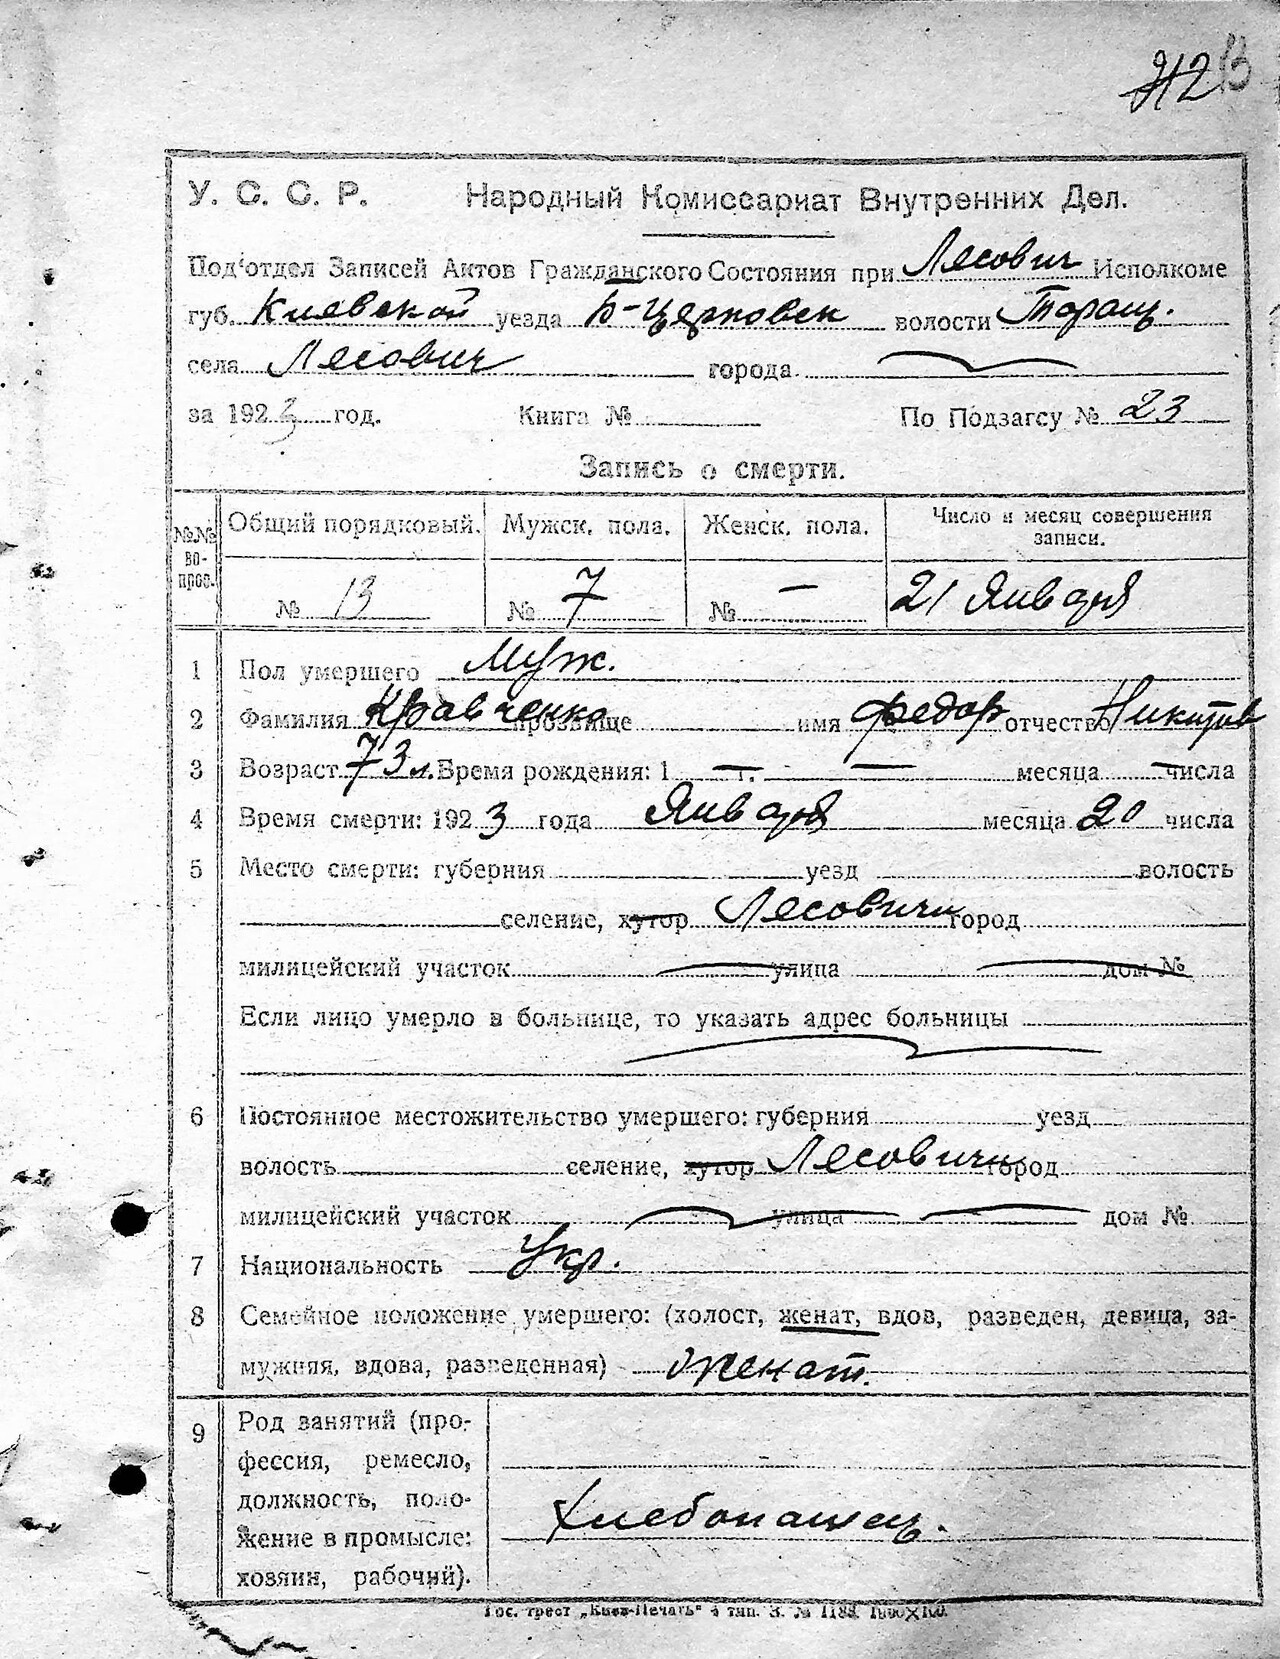 212 13
У. С. С. Р. Народный Комиссариат Внутренних Дел.
Под'отдел Записей Актов Гражданского Состояния при Лесович Исполкоме
губ. Киевской уезда Б-Церковск волости Таращ.
села Лесович города
за 1923 год. Книга № По Подзагсу № 23
Запись о смерти.
№№ вопрос. Общий порядковый. Мужск. пола. Женск. пола. Число и месяц совершения записи.
№ 13 № 7 № – 21 Января
1 Пол умершего Муж.
2 Фамилия Кравченко прозвище имя Федор отчество Никитов
3 Возраст 73 л. Время рождения: 1 — г. — месяца — числа
4 Время смерти: 1923 года Января месяца 20 числа
5 Место смерти: губерния уезд волость
селение, хутор Лесовичи город
милицейский участок улица дом №
Если лицо умерло в больнице, то указать адрес больницы
6 Постоянное местожительство умершего: губерния уезд
волость селение, хутор Лесовичи город
милицейский участок улица дом №
7 Национальность Укр.
8 Семейное положение умершего: (холост, женат, вдов, разведен, девица, за-
мужняя, вдова, разведенная) женат.
9 Род занятий (про-
фессия, ремесло,
должность, поло-
жение в промысле:
хозяин, рабочий).
Хлебопашец.
Гос. трест „Киев-Печать“ 4 тип. З. №